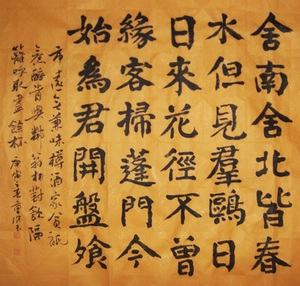 舍南舍北皆春
水但見羣鷗日
日來花徑不曾
緣客掃蓬門今
始為君開盤飱
市遠無兼味樽酒家貧祇
舊醅肯與鄰翁相對飲隔
籬呼取盡餘杯 庚寅